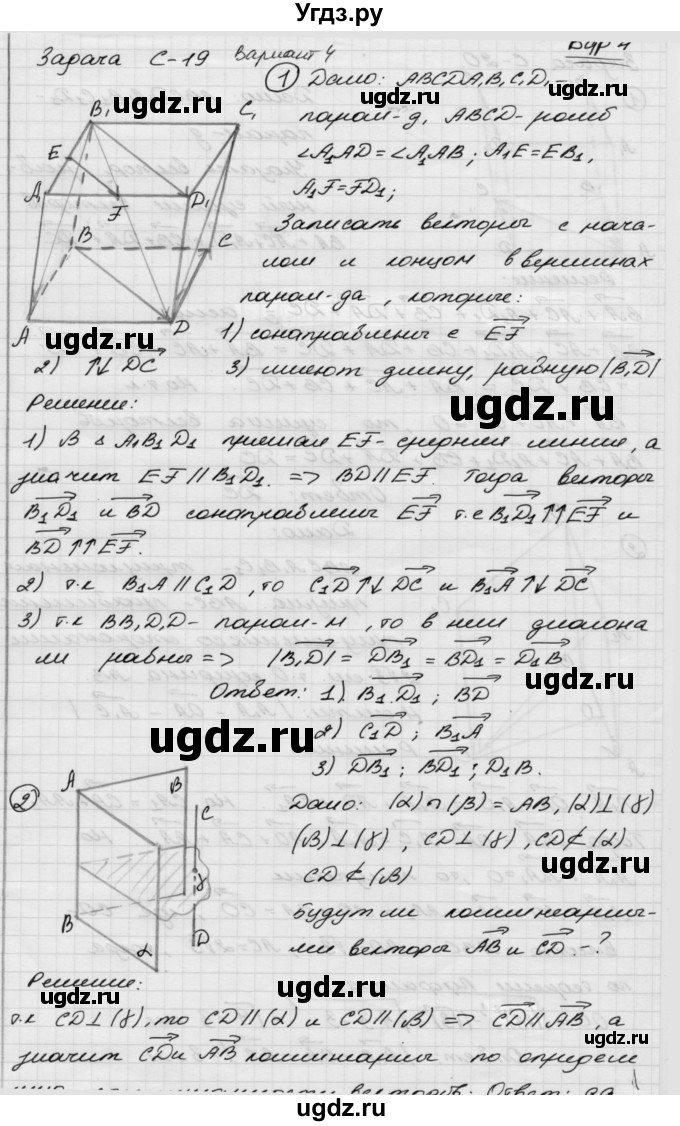 Угдз.ру
Задача С-19 Вариант 4
① Дано: ABCDA₁B₁C₁D₁ –
парал-д, ABCD – ромб
∠A₁AD = ∠A₁AB; A₁E = EB₁,
A₁F = FD₁;
Записать векторы с нача-
лом и концом в вершинах
парал-да, которые:
1) сонаправлены с EF
2) ↑↓ DC 3) имеют длину, равную |B₁D|
B₁ C₁ E A₁ F D₁ B C A D
Решение:
1) В Δ A₁B₁D₁ EF – средняя линия, а
значит EF || B₁D₁. => BD || EF. Тогда векторы
B₁D₁ и BD сонаправлены EF т.е B₁D₁ ↑↑ EF и
BD ↑↑ EF.
2) т.к B₁A || C₁D, то C₁D ↑↓ DC и B₁A ↑↓ DC
3) т.к BB₁D₁D – парал-м, то в нем диагона
ли равны => |B₁D| = DB₁ = BD₁ = D₁B
Ответ: 1) B₁D₁; BD
2) C₁D; B₁A
3) DB₁; BD₁; D₁B.
② Дано: (α) ∩ (β) = AB, (α) ⊥ (γ)
(β) ⊥ (γ), CD ⊥ (γ), CD ⊄ (α)
CD ⊄ (β)
Будут ли коллинеарны-
ми векторы AB и CD. – ?
A B C γ B D α
Решение:
т.к CD ⊥ (γ), то CD || (α) и CD || (β) => CD || AB, а
значит CD и AB коллинеарны по определе
векторов. Ответ: да
ugdz.ru
ugdz.ru
ugdz.ru
ugdz.ru
ugdz.ru
ugdz.ru
ugdz.ru
ugdz.ru
ugdz.ru
ugdz.ru
ugdz.ru